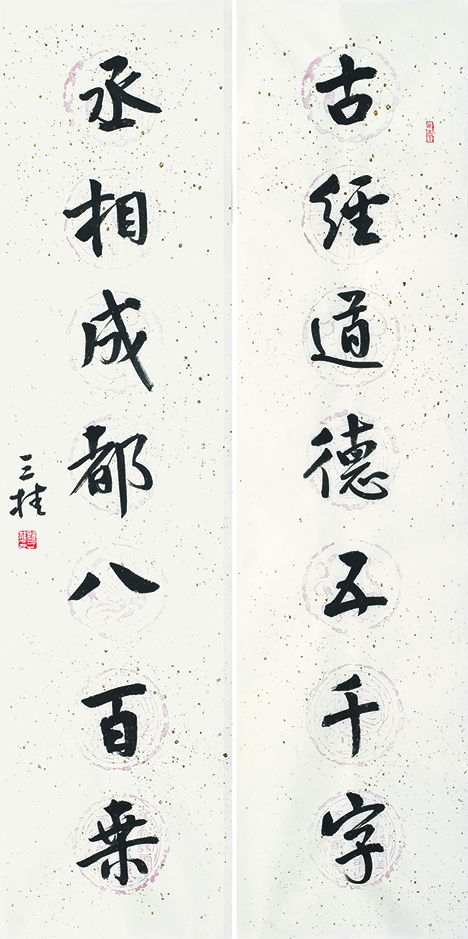 古經道德五千字
丞相成都八百桒
三桂